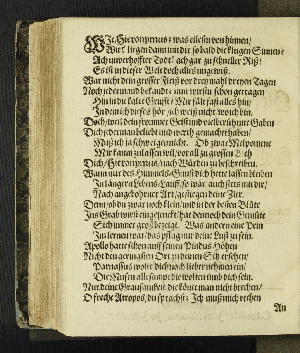 Wie, Hieronymus; was eilest du von hinnen/
Wer liegen dann mit dir so bald die klugen Sinnen?
Ach unverhoffter Todt! ach gar zu schneller Riß!
Es ist in dieser Welt doch alles ungewiß.
War nicht dein grosser Fleiß vor dreymahl dreyen Tagen
Noch jedermand bekandt: nun wirstu schon getragen
Hin in die kalte Grufft: Mir fält fast alles hin/
Indem ich dieses hör/ ich weiß nicht wo ich bin.
Doch/ weil dein frommer Geist und vielberühmte Gaben
Dich jedermann beliebt und werth gemachet haben/
Muß ich ja schweigen nicht. Ob zwar Melpomene
Mir kaum zulassen wil/ vor all zu grossen Weh
Dich/ Hieronymus/ nach Würden zu beschreiben.
Wann nur des Himmels-Gunst dich hette lassen bleiben
In längern Lebens-Lauff/ so wär auch stets mit dir/
Nach angebohrner Art/ gestiegen deine Zier.
Denn/ ob du zwar noch klein/ und in der besten Blüte
Ins Grab wirst eingesenckt/ hat dennoch dein Gemüte
Sich immer groß bezeigt. Was andern eine Pein
Zu lernen war/ das pflag nur deine Lust zu sein.
Apollo hatte schon auff seinen Pindus-Höhen
Nicht den geringsten Ort zu deinem Sitz ersehen/
Parnassus wolte dich noch lieber nehmen ein/
Die Musen allesampt die wolten umb dich sein.
Nur deine Grausamkeit die könte man nicht brechen/
O freche Atropos/ du sprachst: Ich muß mich rechen
An